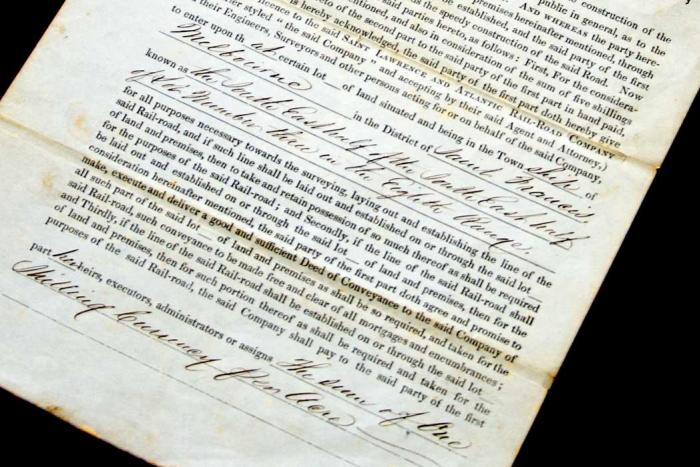 public in general, as to the
construction of the
the speedy construction of the said Road.
AND WHEREAS the party here-
premises hereinafter mentioned, through
established, and the said party
said parties hereto, as follows: First, For the considera-
mentioned, and also in consideration of the sum of five shillings
hereto of the second part to the said party of the first part in hand paid,
is hereby acknowledged, the said party of the first part doth hereby give
licence to the said SAINT LAWRENCE AND ATLANTIC RAIL-ROAD COMPANY
after styled "the said Company" and accepting by their said Agent and Attorney,)
their Engineers, Surveyors and other persons acting for or on behalf of the said Company,
to enter upon that certain lot of land situated and being in the Town ship of
Melbourne in the District of Saint Francis
known as the South East half of the South East half
of Lot Number three in the Eighth Range.
for all purposes necessary towards the surveying, laying out and establishing the line of the
said Rail-road, and if such line shall be laid out and established on or through the said lot
of land and premises, then to take and retain possession of so much thereof as shall be required
for the purposes of the said Rail-road; and Secondly, if the line of the said Rail-road shall
be laid out and established on or through the said lot of land and premises, then for the
consideration hereinafter mentioned, the said party of the first part doth agree and promise to
make, execute and deliver a good and sufficient Deed of Conveyance to the said Company of
all such part of the said lot of land and premises as shall be so required, and taken for the
said Rail-road, such conveyance to be made free and clear of all mortgages and encumbrances;
and Thirdly, if the line of the said Rail-road shall be established on or through the said lot
of land and premises, then for such portion thereof as shall be required and taken for the
purposes of the said Rail-road, the said Company shall pay to the said party of the first
part his heirs, executors, administrators or assigns The sum of One
Shilling Currency Per Acre